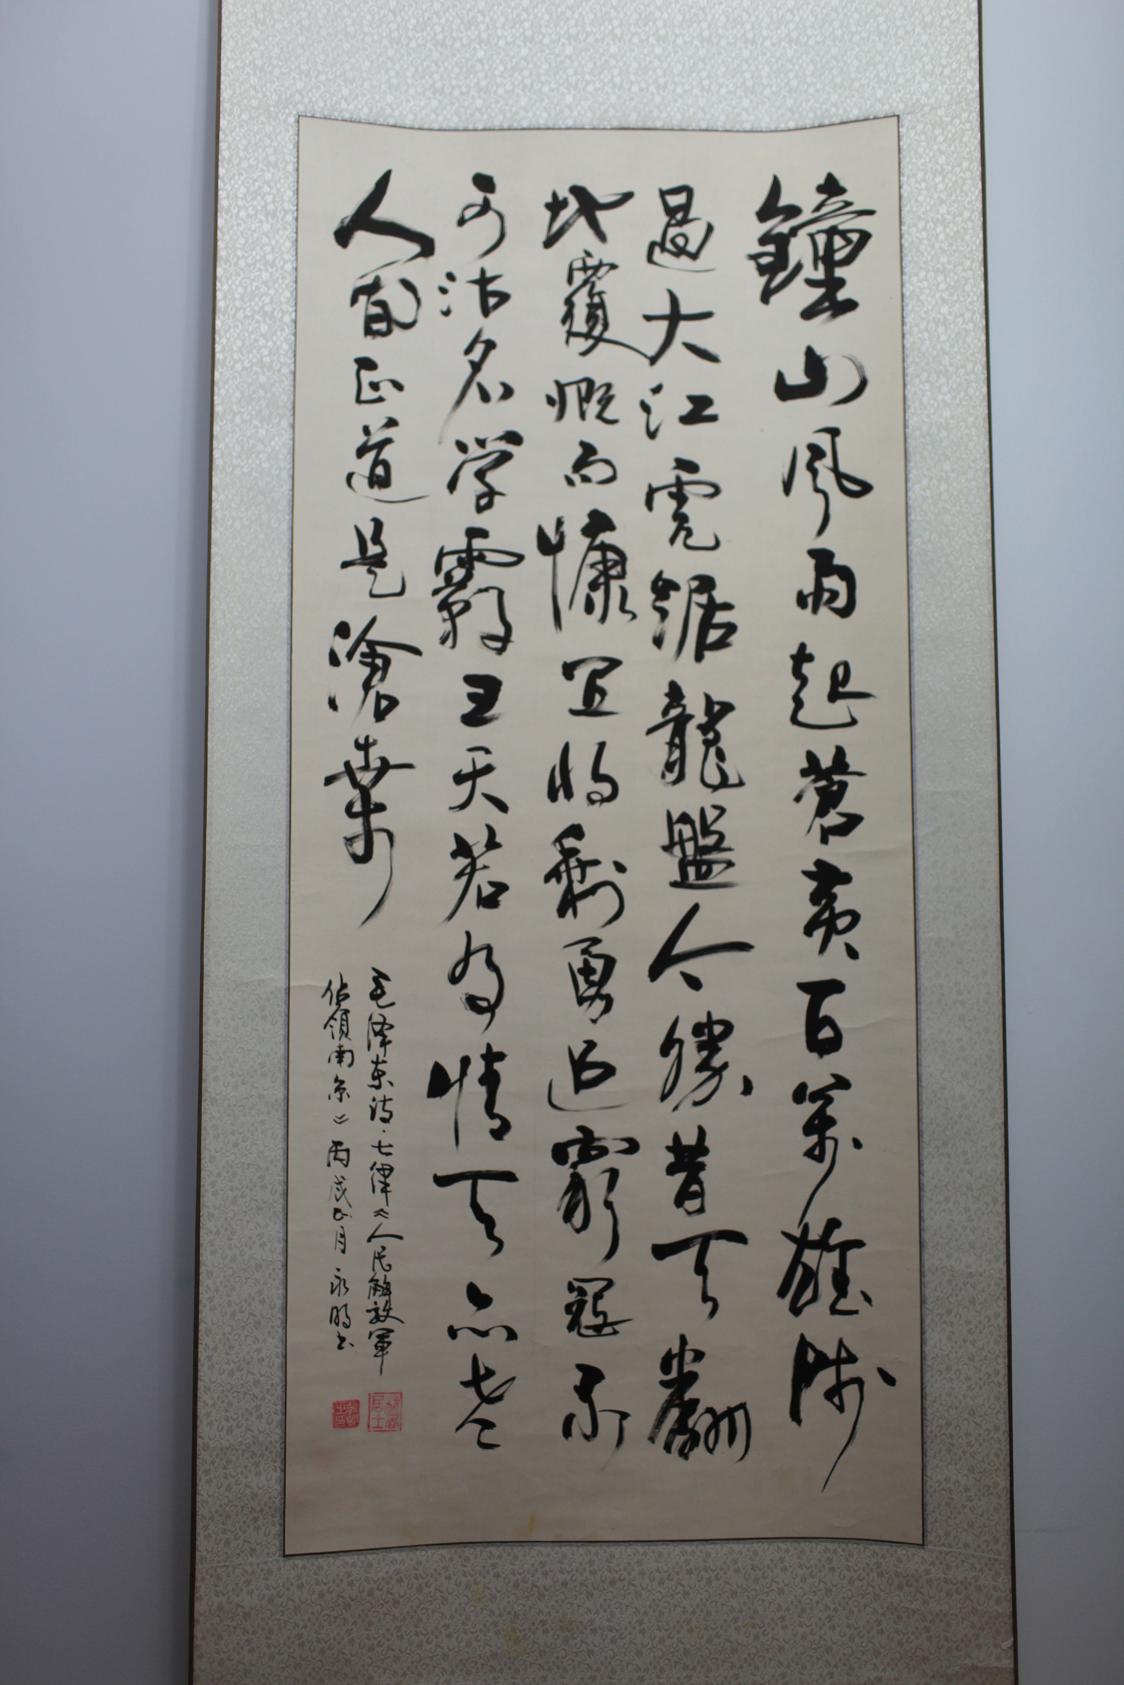 鐘山風雨起蒼黃百萬雄師
過大江虎踞龍盤今勝昔天翻
地覆慨而慷宜將剩勇追窮寇不
可沽名学霸王天若有情天亦老
人間正道是滄桑
毛泽东诗·七律《人民解放军
佔领南京》丙戌 月永明书